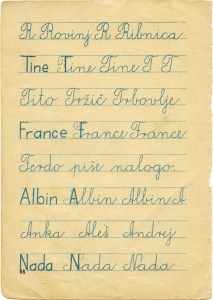 R Rovinj R Ribnica
Tine T Tine Tine T T
Tito Tržič Trbovlje
France France France
Ferdo piše nalogo.
Albin A Albin Albin A
Anka Aleš Andrej
Nada Nada Nada